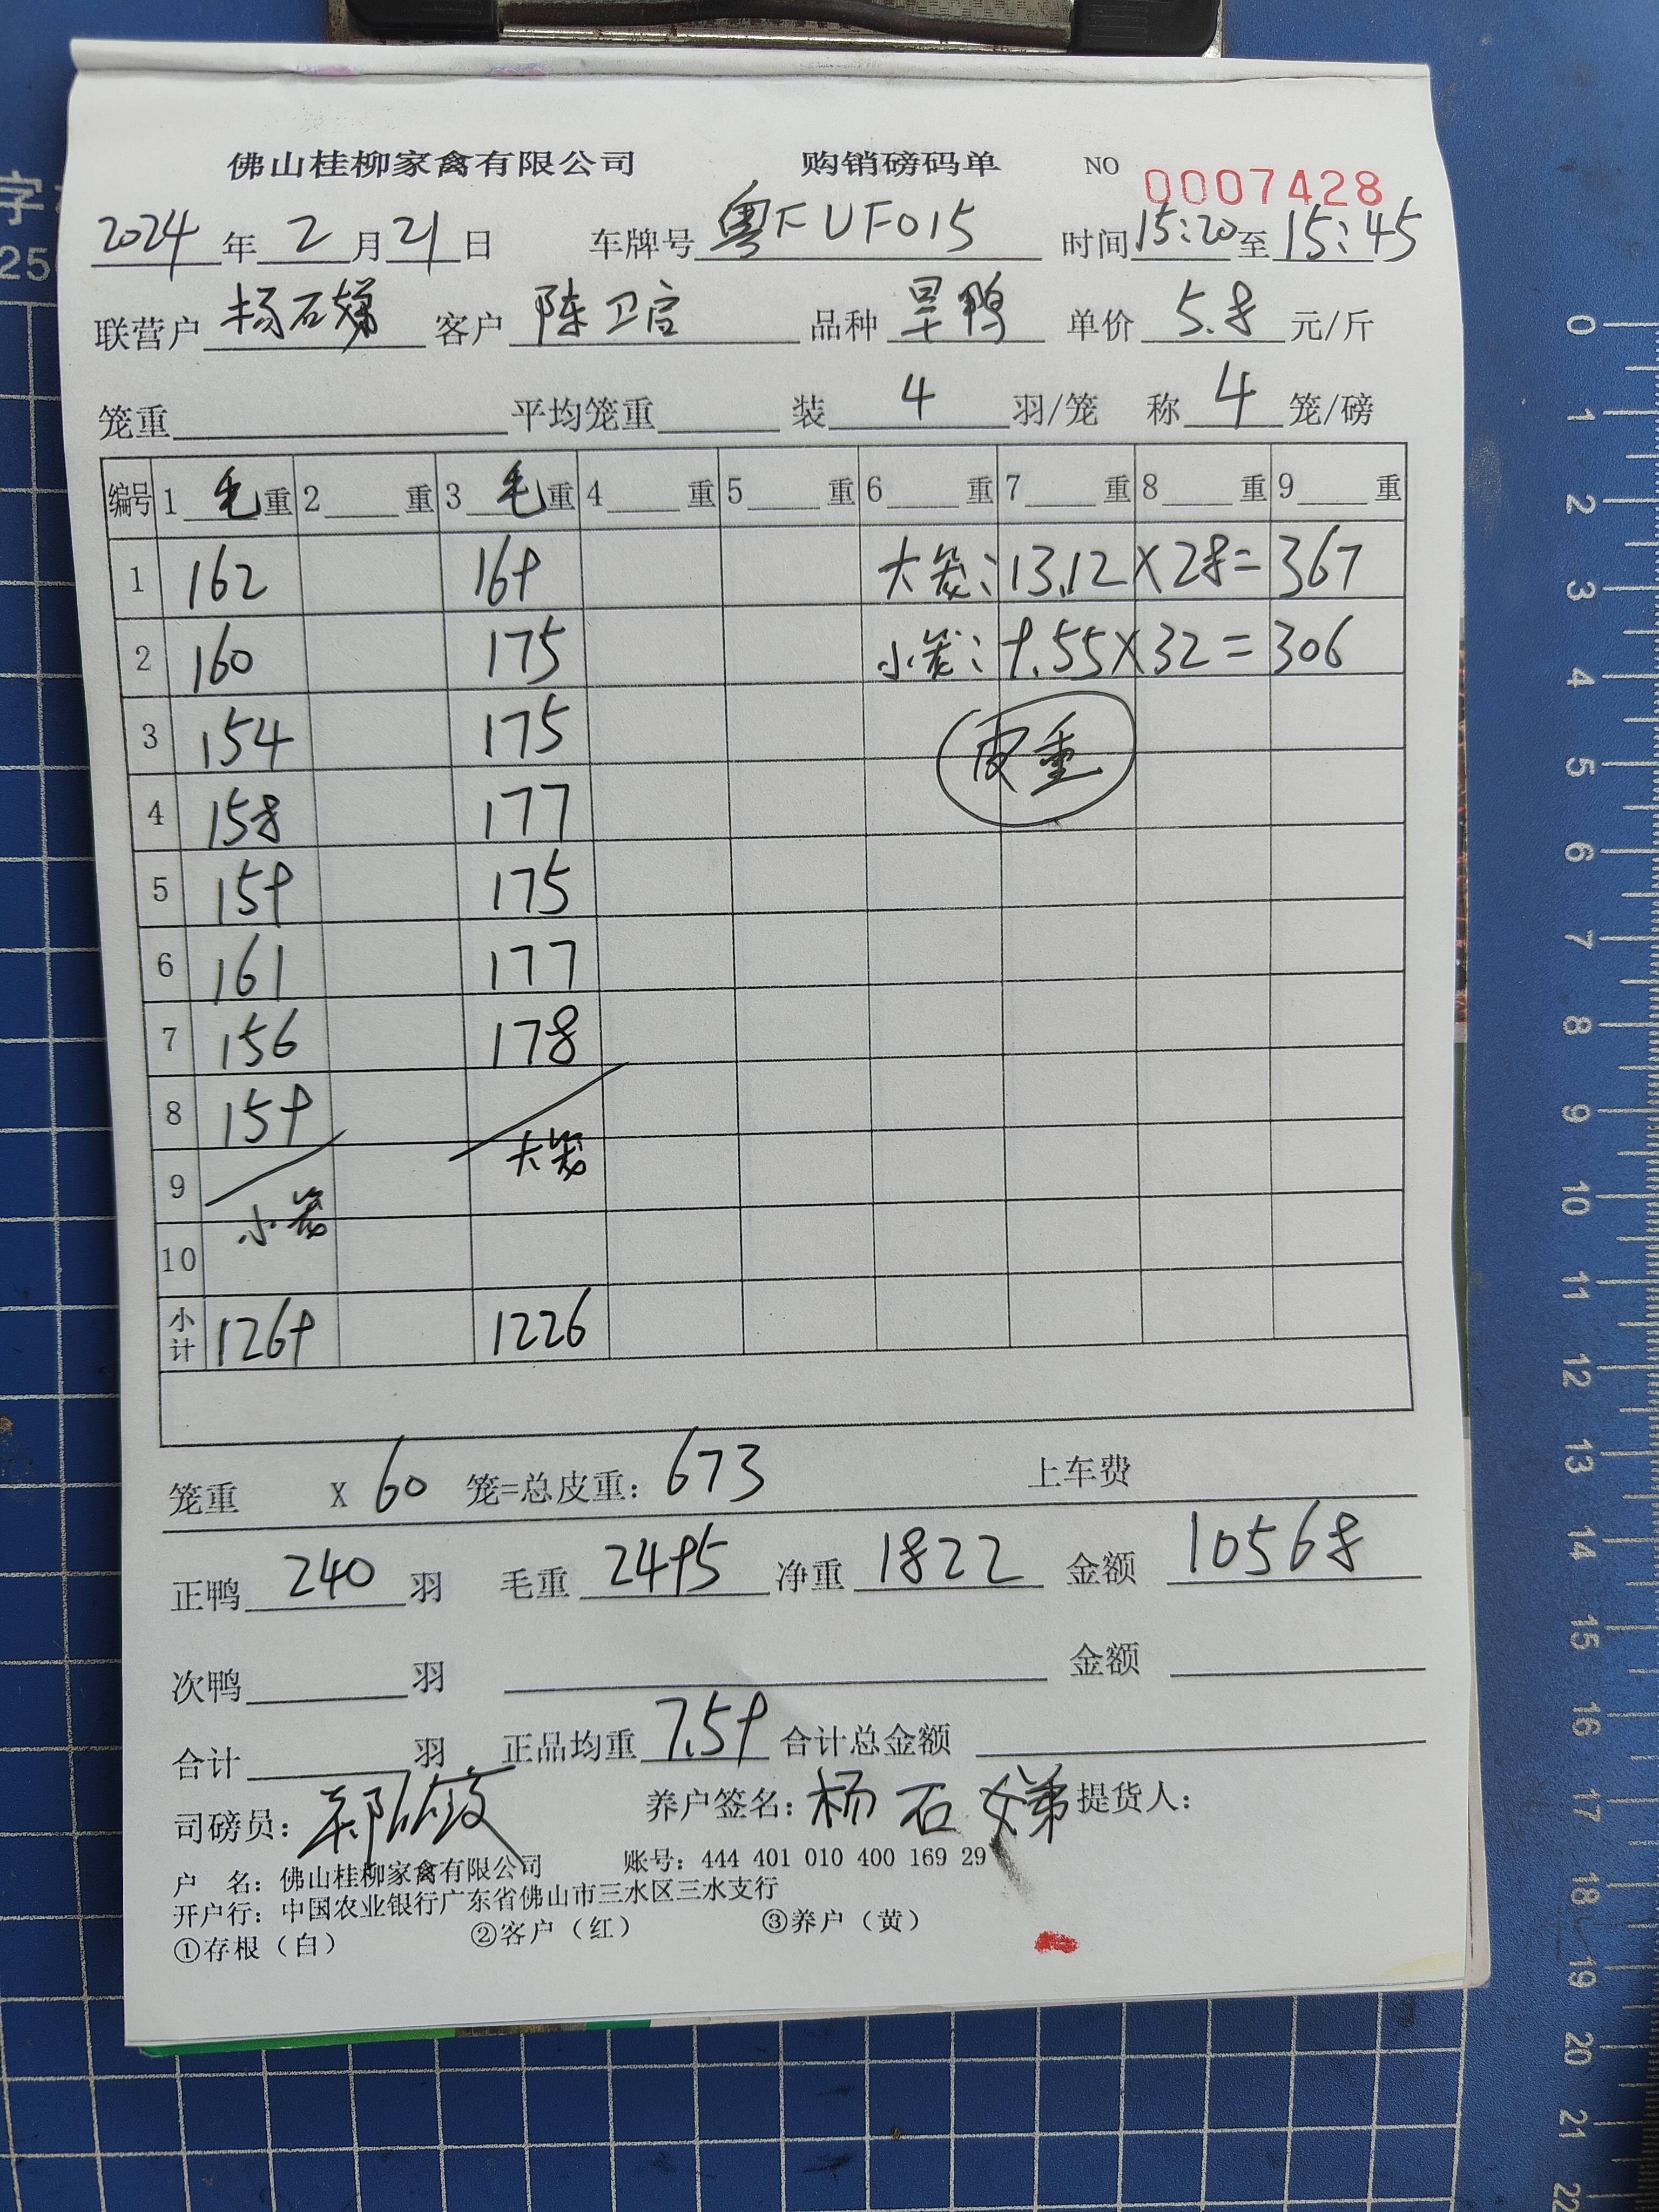 佛山桂柳家禽有限公司 购销磅码单 NO 0007428
2024年2月21日 车牌号 粤FUF015 时间15:20至15:45
联营户 杨石娣 客户 陈卫宫 品种 旱鸭 单价 5.8 元/斤
笼重 平均笼重 装 4 羽/笼 称 4 笼/磅
编号 1 毛重 2 重 3 毛重 4 重 5 重 6 重 7 重 8 重 9 重
1 162 169 大笼:13.12×28=367
2 160 175 小笼:9.55×32=306
3 154 175 皮重
4 158 177
5 159 175
6 161 177
7 156 178
8 159 大笼
9 小笼
10
小计 1269 1226
笼重 X 60 笼=总皮重: 673 上车费
正鸭 240 羽 毛重 2495 净重 1822 金额 10568
次鸭 羽 金额
合计 羽 正品均重 7.59 合计总金额
司磅员: 养户签名: 杨石娣 提货人:
户 名: 佛山桂柳家禽有限公司 账号: 444 401 010 400 169 29
开户行: 中国农业银行广东省佛山市三水区三水支行
①存根（白） ②客户（红） ③养户（黄）
字
25
0
1
2
3
4
5
6
7
8
9
10
11
12
13
14
15
16
17
18
19
20
21
22